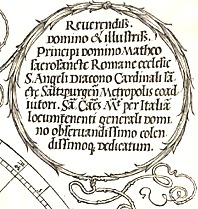 Reverendiss.
domino & illustriss.
Principi domino Matheo
sacrosancte Romane ecclesie
S. Angeli Diacono Cardinali
etc. Saltzpurgen Metropolis coad
iutori. Sac. Caes. per Italiā
locumtenenti generali domi
no observandissimo colen
dissimoq. dedicatum.